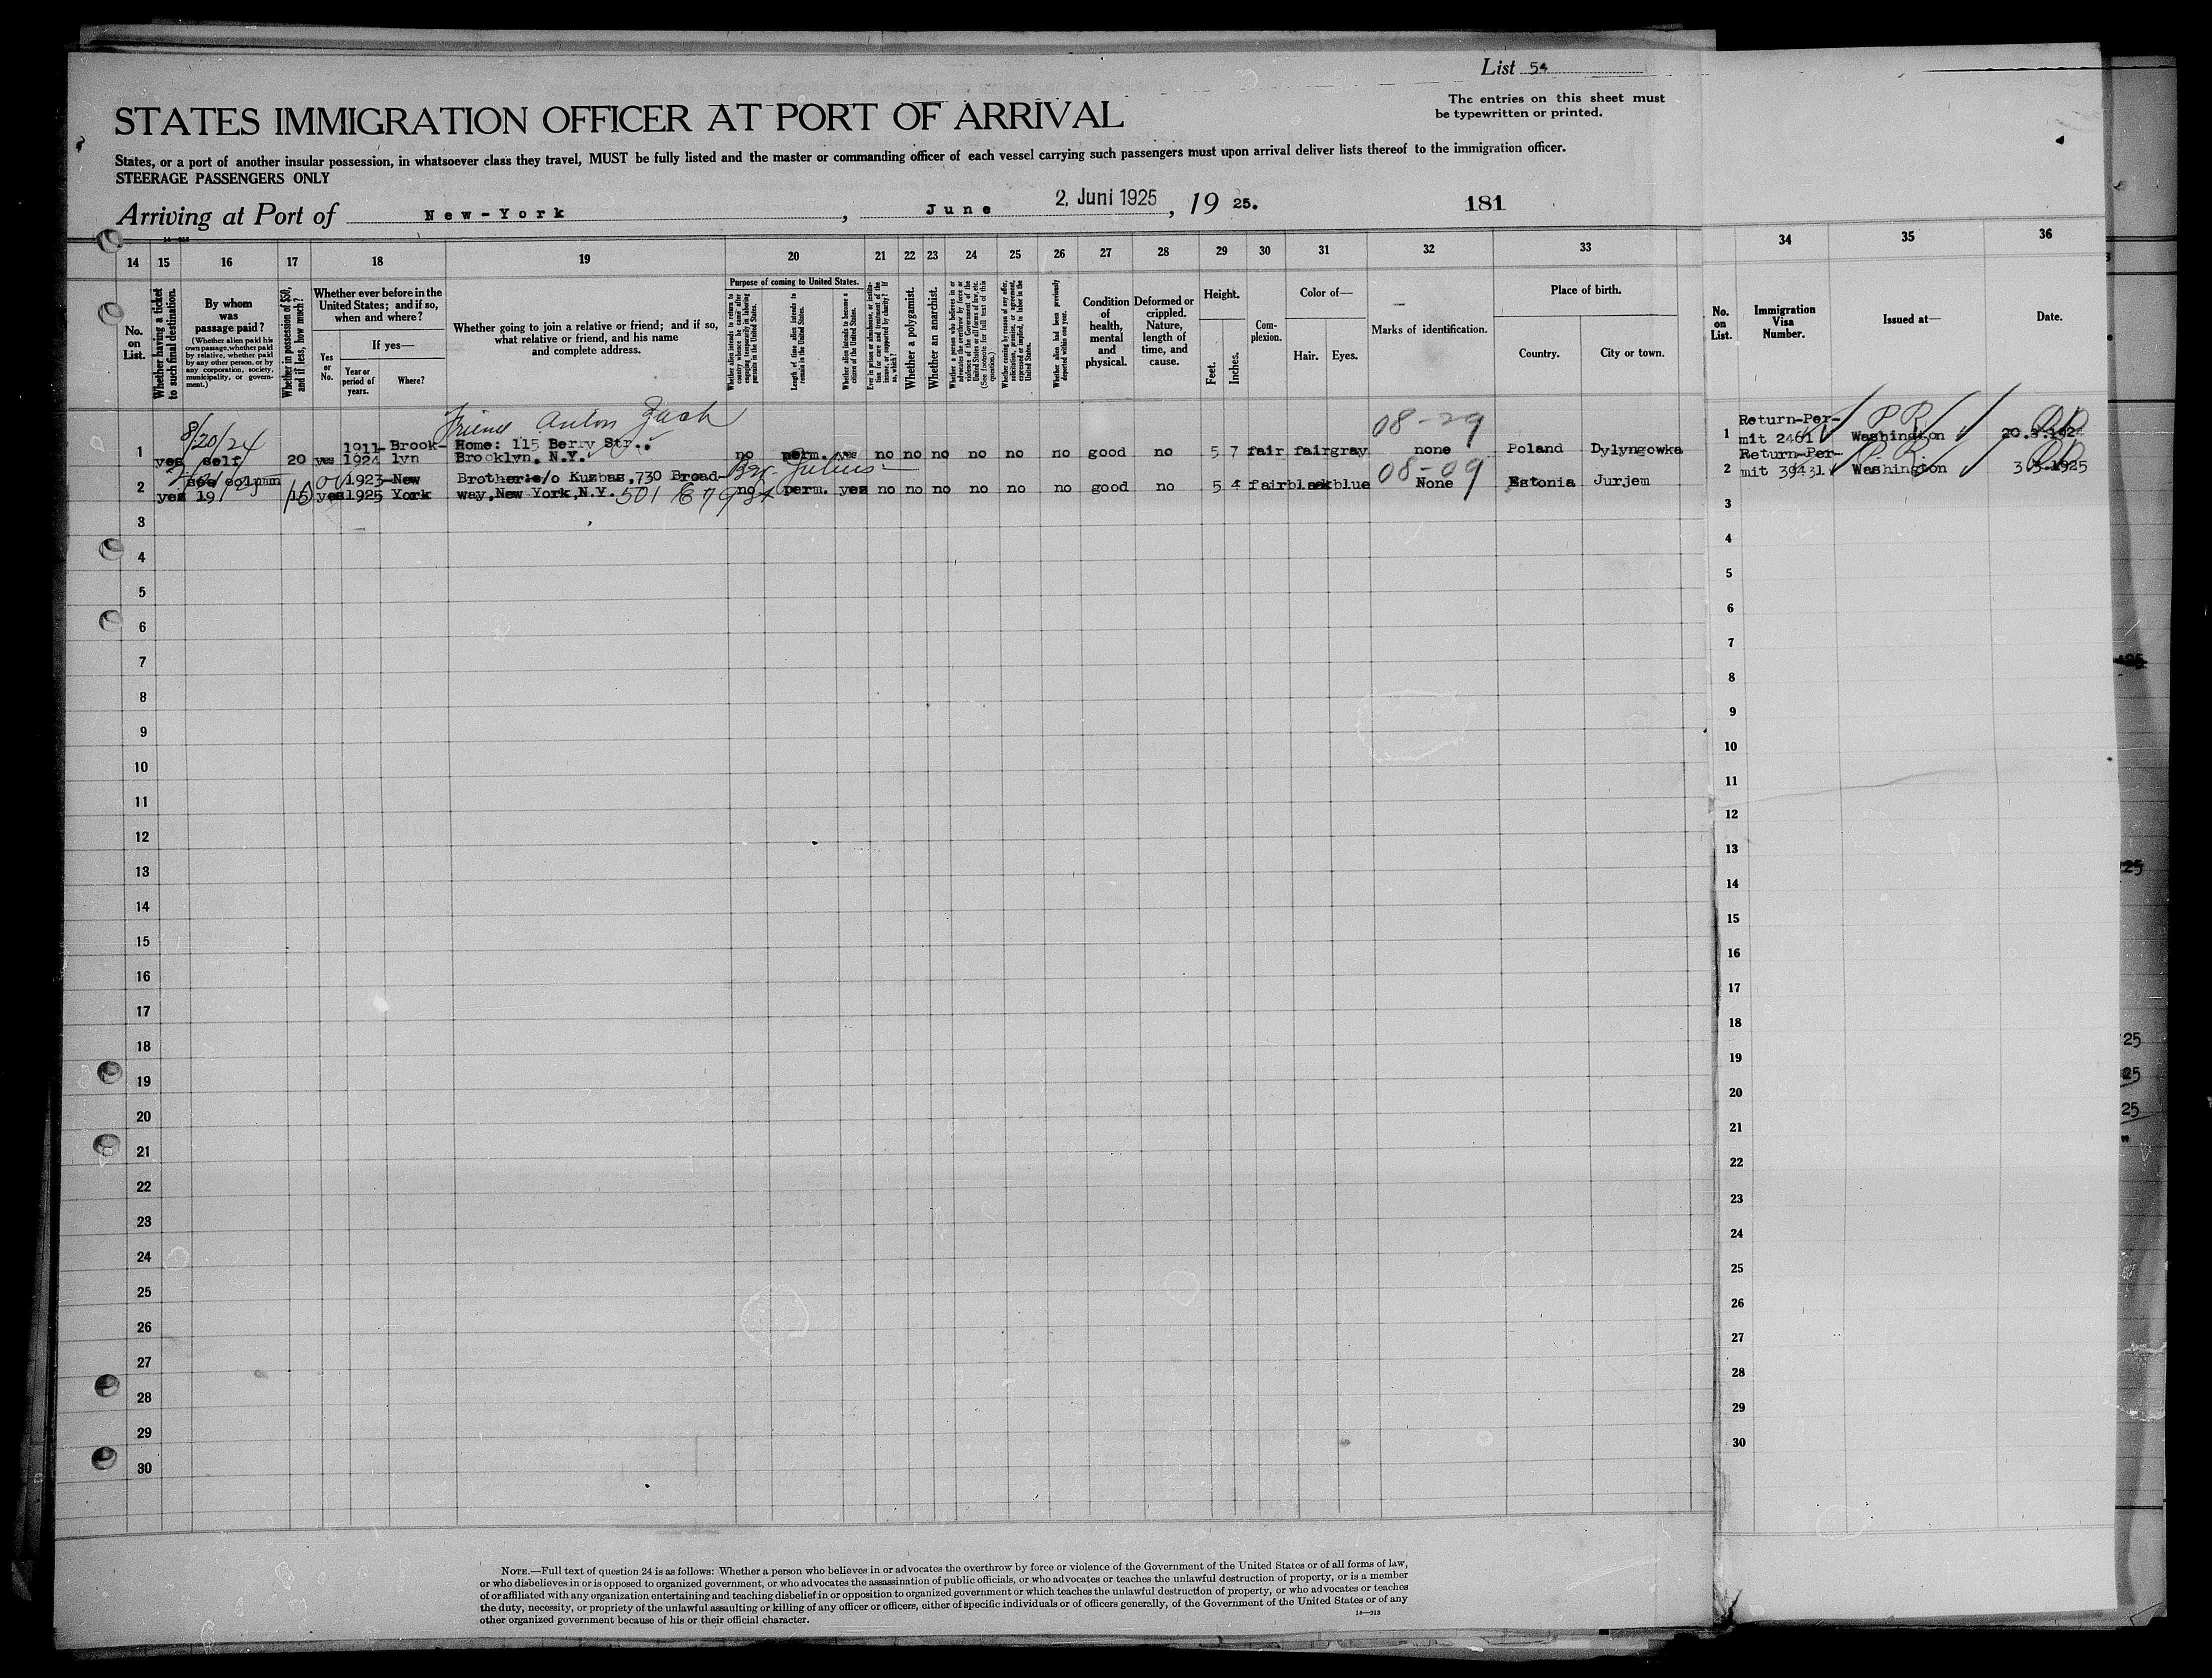 List 54
The entries on this sheet must
be typewritten or printed.
STATES IMMIGRATION OFFICER AT PORT OF ARRIVAL
States, or a port of another insular possession, in whatsoever class they travel, MUST be fully listed and the master or commanding officer of each vessel carrying such passengers must upon arrival deliver lists thereof to the immigration officer.
STEERAGE PASSENGERS ONLY
Arriving at Port of New-York, June 2. Juni 1925, 19 25.
181
14 15 16 17 18 19 20 21 22 23 24 25 26 27 28 29 30 31 32 33 34 35 36
No.
on
List.
Whether having a ticket
to such final destination.
By whom
was
passage paid?
(Whether alien paid his
own passage, whether paid
by relative, whether paid
by any other person, or by
any corporation, society,
municipality, or govern-
ment.)
Whether in possession of $50,
and if less, how much?
Whether ever before in the
United States; and if so,
when and where?
Yes
or
No.
If yes—
Year or
period of
years.
Where?
Whether going to join a relative or friend; and if so,
what relative or friend, and his name
and complete address.
Purpose of coming to United States.
Whether alien intends to return to
country whence he came after
engaging temporarily in laboring
pursuits in the United States.
Length of time alien intends to
remain in the United States.
Whether alien intends to become a
citizen of the United States.
Ever in prison or almshouse, or institu-
tion for care and treatment of the
insane, or supported by charity? If
so, which?
Whether a polygamist.
Whether an anarchist.
Whether a person who believes in or
advocates the overthrow by force or
violence of the Government of the
United States or all forms of law, etc.
(See footnote for full text of this
question.)
Whether coming by reason of any offer,
solicitation, promise, or agreement,
expressed or implied, to labor in the
United States.
Whether alien had been previously
deported within one year.
Condition
of
health,
mental
and
physical.
Deformed or
crippled.
Nature,
length of
time, and
cause.
Height.
Feet.
Inches.
Com-
plexion.
Color of—
Hair.
Eyes.
Marks of identification.
Place of birth.
Country.
City or town.
No.
on
List.
Immigration
Visa
Number.
Issued at—
Date.
8/20/24
Friend Anton Zach
08-29
1 yes self 20 yes 1911- 1924 Brook- lyn
Home: 115 Berry Str.,
Brooklyn, N.Y.
no perm. yes no no no no no no good no 5 7 fair fair gray none Poland Dylyngowka
1 Return-Per-
mit 2461 Washington 20.8.1924
Bro. Julius
08-09
2 yes see column 19 15 yes 1923- 1925 New York
Brother: c/o Kuzbas, 730 Broad-
way, New York, N.Y. 501 E 79 St
no perm. yes no no no no no no good no 5 4 fair black blue None Estonia Jurjem
2 Return-Per-
mit 39431 Washington 3.3.1925
3 3
4 4
5 5
6 6
7 7
8 8
9 9
10 10
11 11
12 12
13 13
14 14
15 15
16 16
17 17
18 18
19 19
20 20
21 21
22 22
23 23
24 24
25 25
26 26
27 27
28 28
29 29
30 30
NOTE.—Full text of question 24 is as follows: Whether a person who believes in or advocates the overthrow by force or violence of the Government of the United States or of all forms of law,
or who disbelieves in or is opposed to organized government, or who advocates the assassination of public officials, or who advocates or teaches the unlawful destruction of property, or is a member
of or affiliated with any organization entertaining and teaching disbelief in or opposition to organized government or which teaches the unlawful destruction of property, or who advocates or teaches
the duty, necessity, or propriety of the unlawful assaulting or killing of any officer or officers, either of specific individuals or of officers generally, of the Government of the United States or of any
other organized government because of his or their official character.